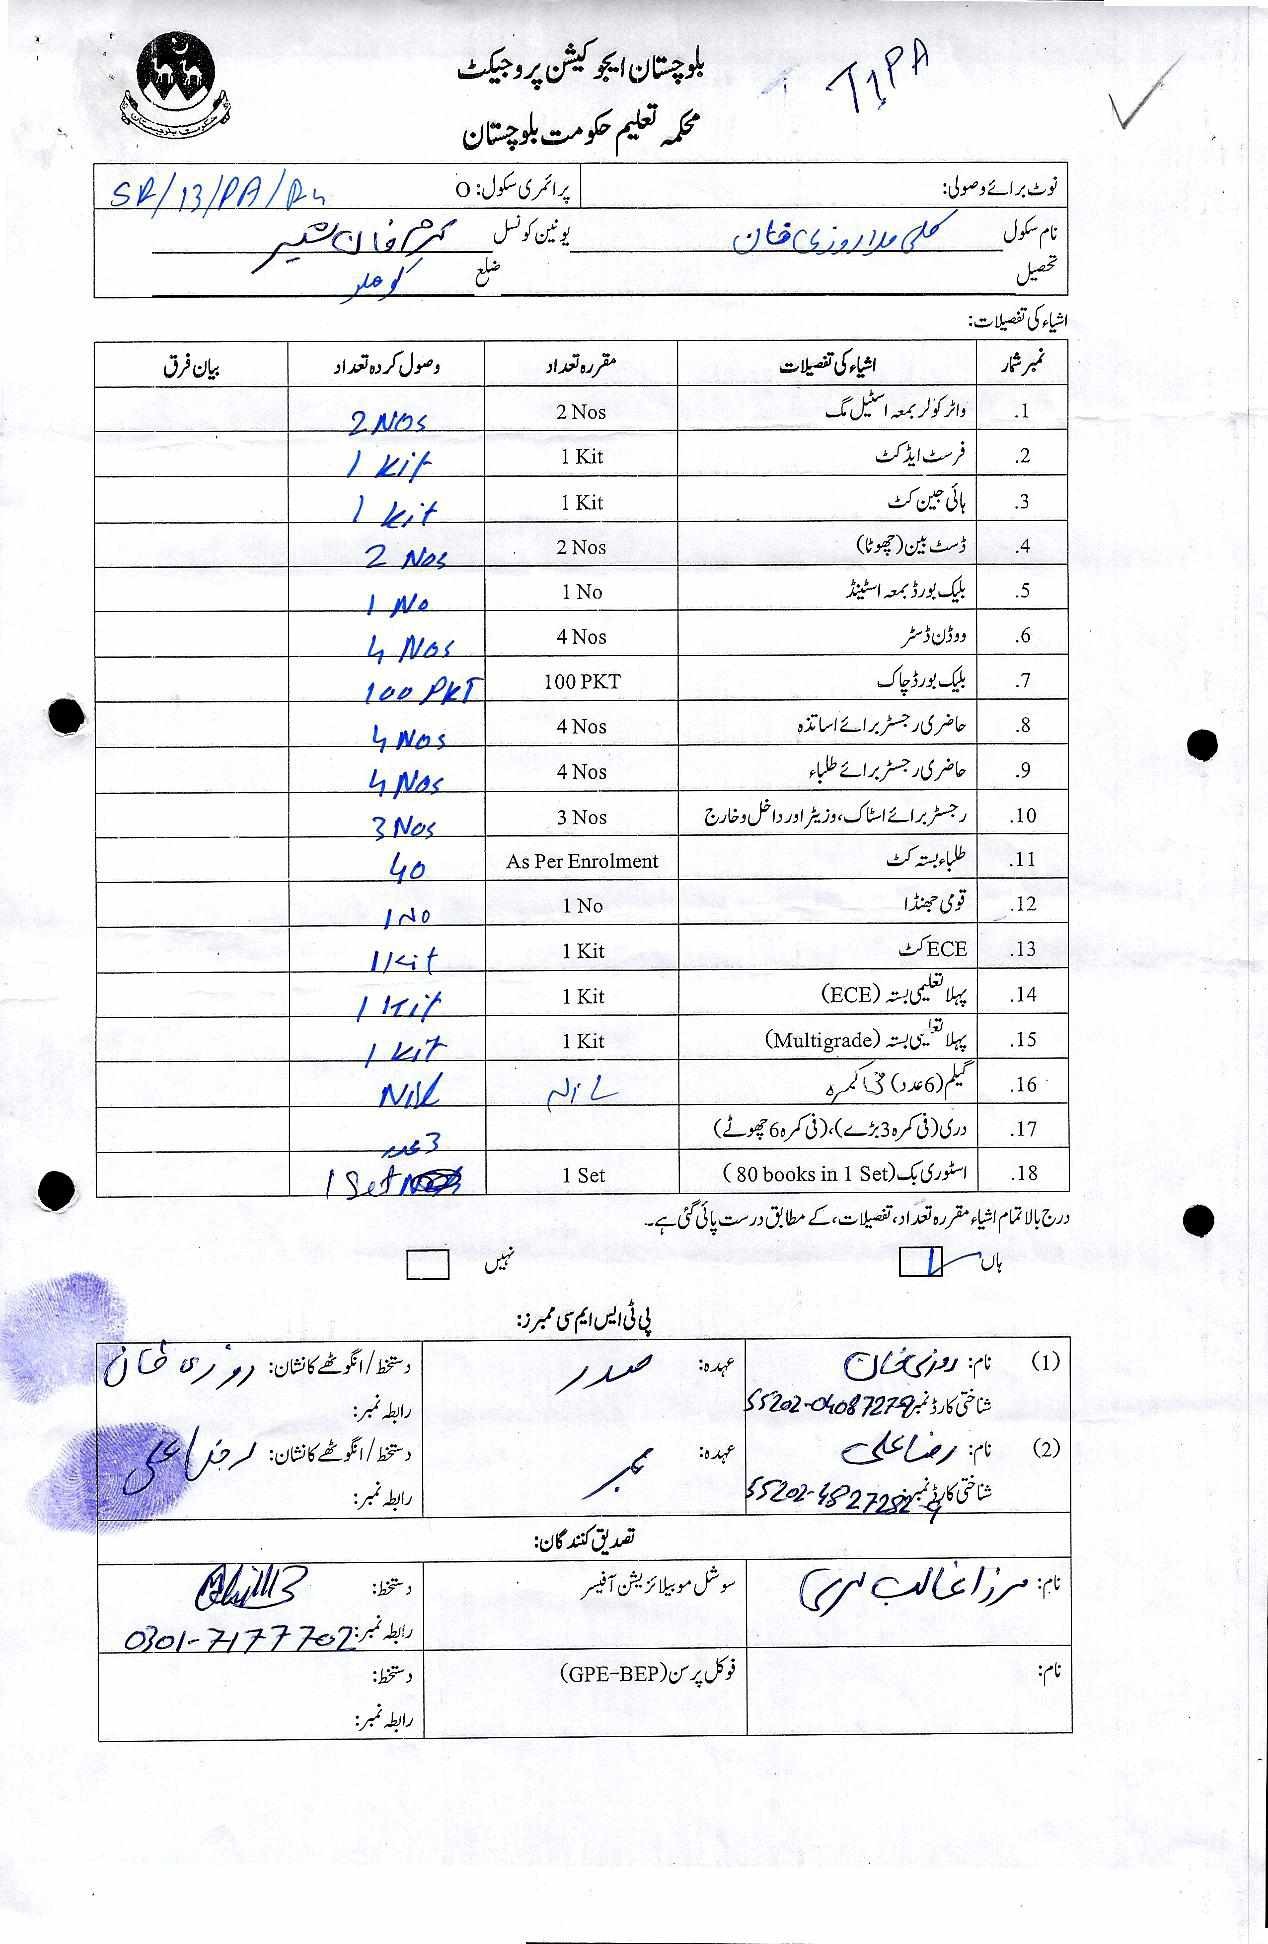 بلوچستان ایجوکیشن پروجیکٹ
T1PA
محکمہ تعلیم حکومت بلوچستان
حکومت بلوچستان
نوٹ برائے وصولی: پرائمری سکول: O SR/13/PA/R4
نام سکول کلی ملا روزی خان یونین کونسل کرم خان شہیر
تحصیل ضلع کوہلو
اشیاء کی تفصیلات:
نمبر شمار اشیاء کی تفصیلات مقررہ تعداد وصول کردہ تعداد بیان فرق
1. واٹر کولر بمعہ اسٹیل مگ 2 Nos 2 NOS
2. فرسٹ ایڈ کٹ 1 Kit 1 Kit
3. ہائی جین کٹ 1 Kit 1 Kit
4. ڈسٹ بین (چھوٹا) 2 Nos 2 Nos
5. بلیک بورڈ بمعہ اسٹینڈ 1 No 1 No
6. ووڈن ڈسٹر 4 Nos 4 Nos
7. بلیک بورڈ چاک 100 PKT 100 PKT
8. حاضری رجسٹر برائے اساتذہ 4 Nos 4 Nos
9. حاضری رجسٹر برائے طلباء 4 Nos 4 Nos
10. رجسٹر برائے اسٹاک، وزیٹر اور داخل و خارج 3 Nos 3 Nos
11. طلباء بستہ کٹ As Per Enrolment 40
12. قومی جھنڈا 1 No 1 No
13. ECE کٹ 1 Kit 1 Kit
14. پہلا تعلیمی بستہ (ECE) 1 Kit 1 Kit
15. پہلا تعلیمی بستہ (Multigrade) 1 Kit 1 Kit
16. گیلم (6 عدد) فی کمرہ NIL NIL
17. دری (فی کمرہ 3 بڑے)، (فی کمرہ 6 چھوٹے) 3 عدد
18. اسٹوری بک (80 books in 1 Set) 1 Set 1 Set
درج بالا تمام اشیاء مقررہ تعداد، تفصیلات، کے مطابق درست پائی گئی ہے۔
ہاں نہیں
پی ٹی ایس ایم سی ممبرز:
(1) نام: روزی خان عہدہ: صدر دستخط/انگوٹھے کا نشان: روزی خان
شناختی کارڈ نمبر 55202-0408727 رابطہ نمبر:
(2) نام: رضا علی عہدہ: ممبر دستخط/انگوٹھے کا نشان: رضا علی
شناختی کارڈ نمبر 55202-4827282-9 رابطہ نمبر:
تصدیق کنندگان:
نام: مرزا غالب مری سوشل موبیلائزیشن آفیسر دستخط:
رابطہ نمبر: 0301-7177702
نام: فوکل پرسن (GPE-BEP) دستخط:
رابطہ نمبر: